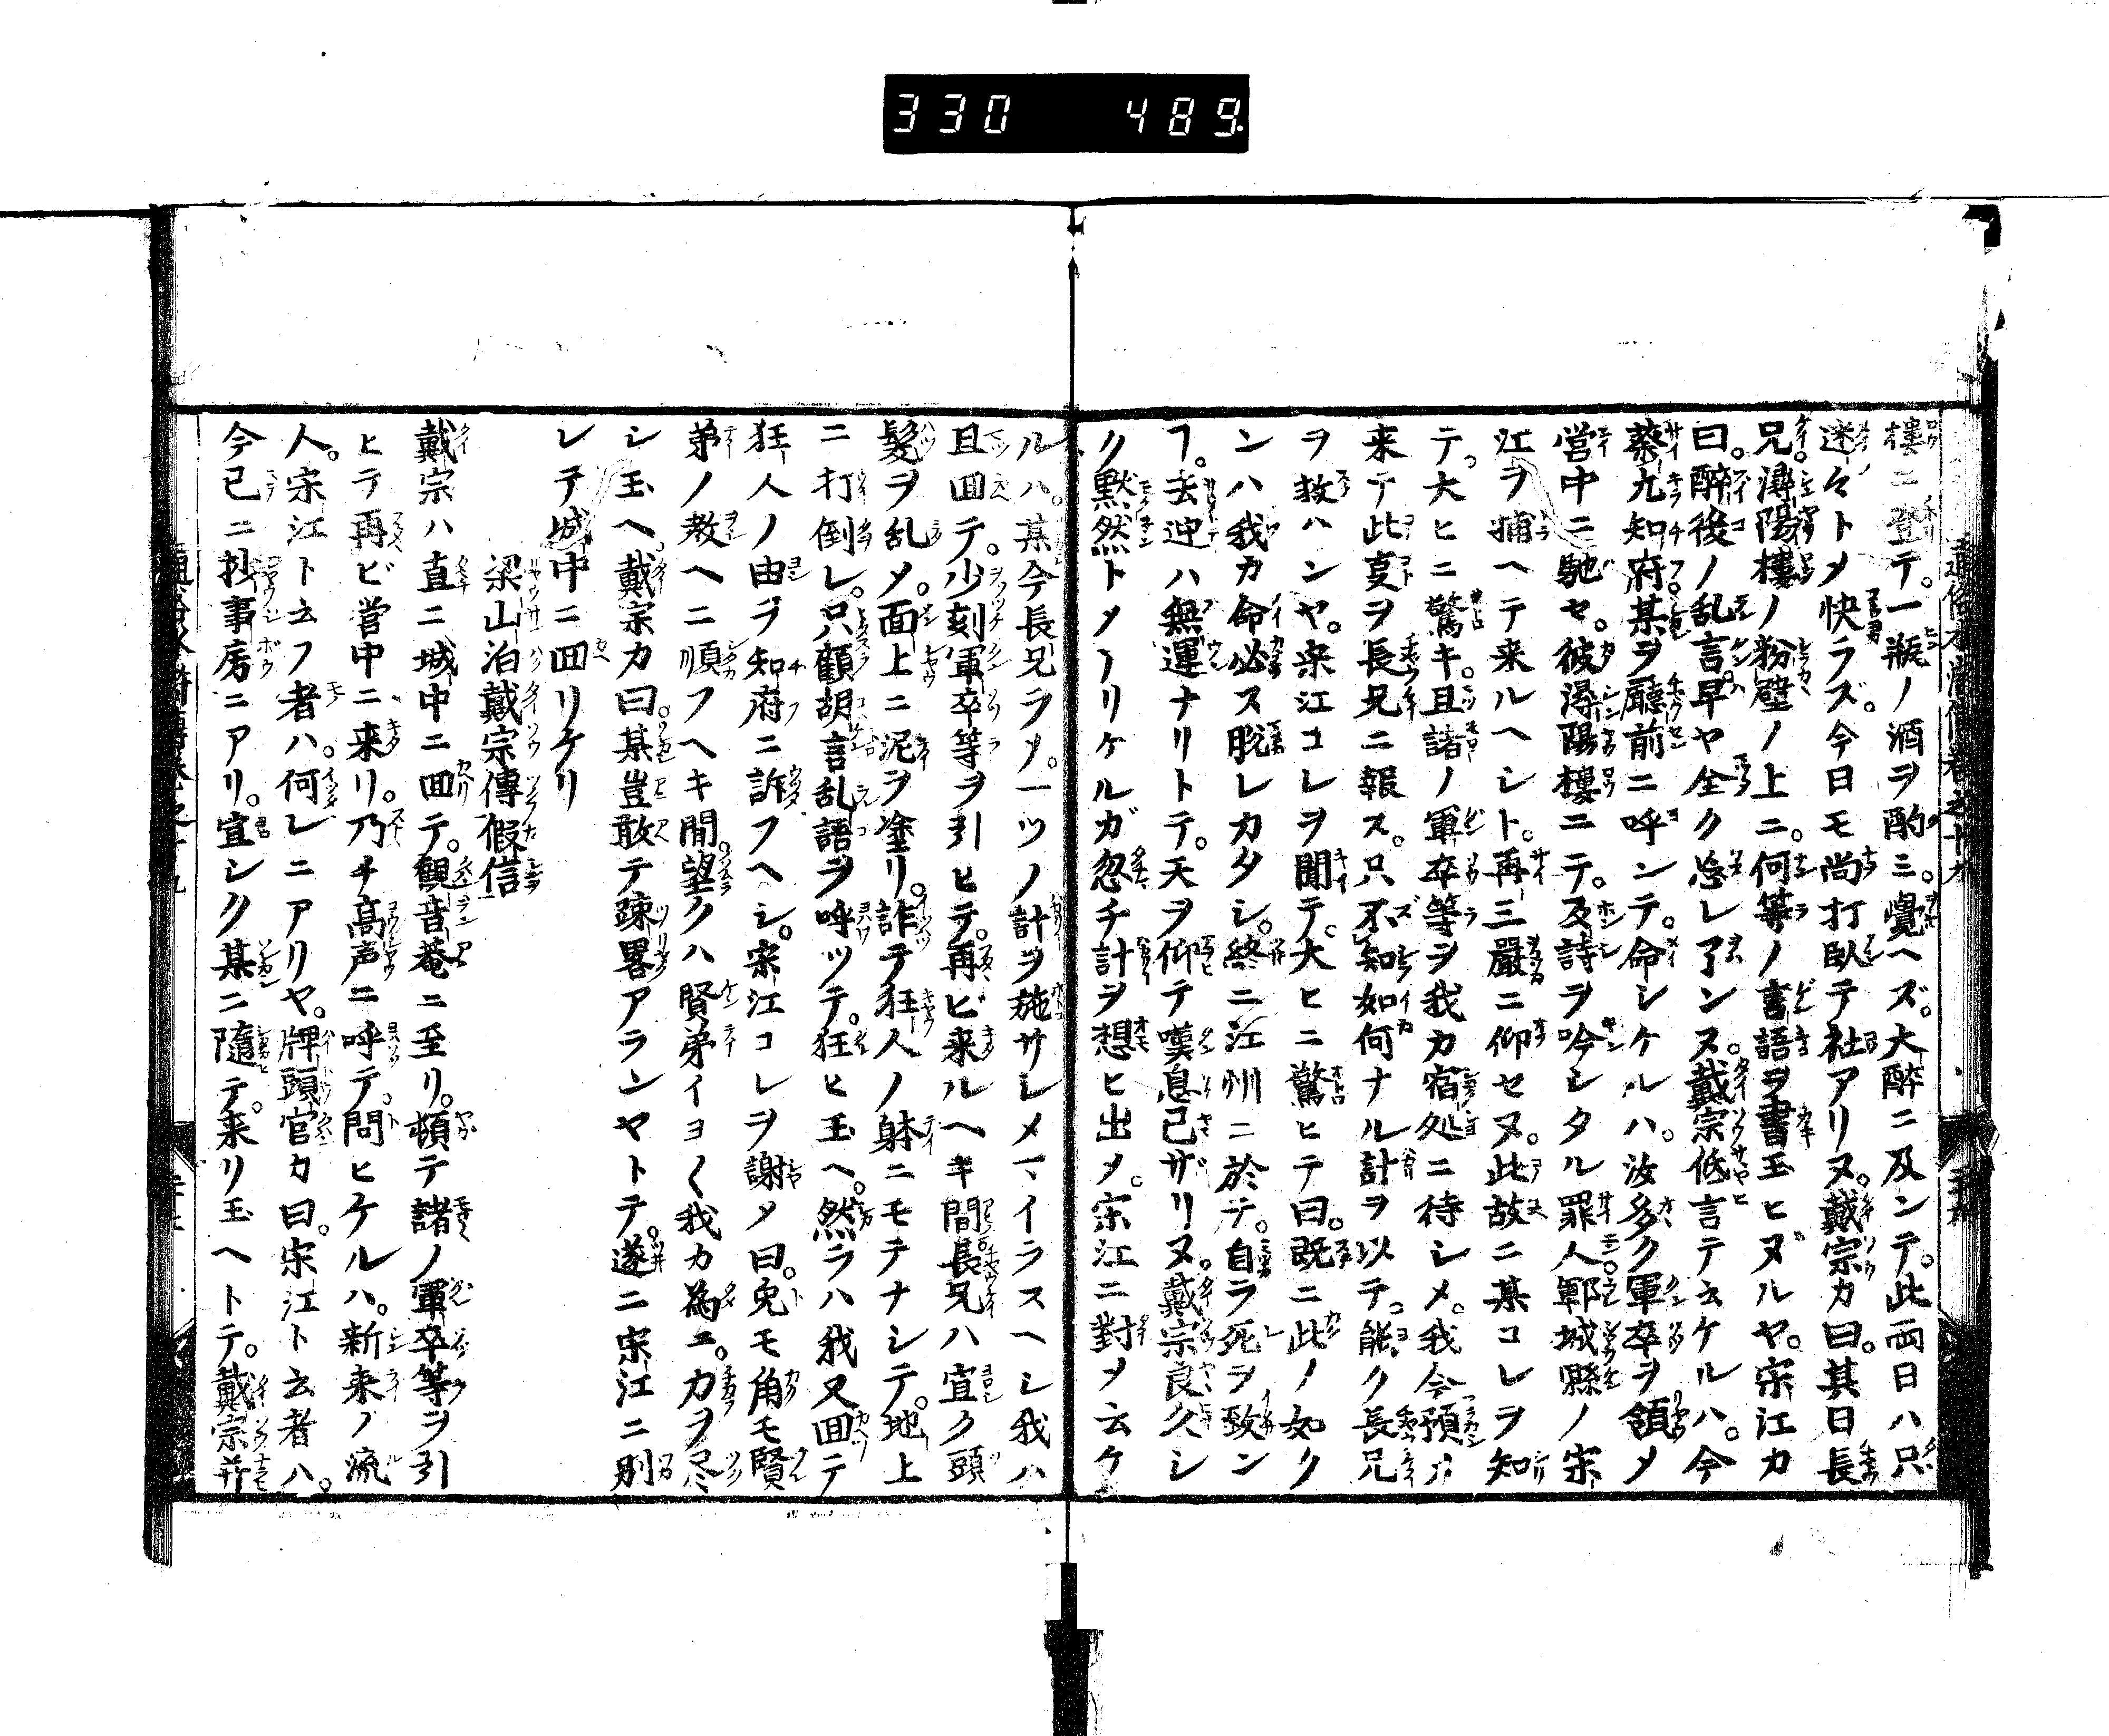 330 489
樓ニ登テ。一瓶ノ酒ヲ酌ミ。覺ヘズ。大醉ニ及ンテ。此両日ハ只
迷々トメ快ラズ。今日モ尚打臥テ社アリヌ。戴宗カ曰。其日長
兄。潯陽樓ノ粉壁ノ上ニ。何等ノ言語ヲ書玉ヒヌルヤ。宋江カ
曰。醉後ノ乱言。早ヤ全ク忘レ了ンヌ。戴宗低言テ云ケルハ。今
蔡九知府。某ヲ廳前ニ呼ンテ。命シケルハ。汝多ク軍卒ヲ領メ
營中ニ馳セ。彼潯陽樓ニテ。反詩ヲ吟シタル罪人鄆城縣ノ宋
江ヲ捕ヘテ来ルヘシト。再三嚴ニ仰セヌ。此故ニ某コレヲ知
テ。大ヒニ驚キ。且諸ノ軍卒等ヲ我カ宿処ニ待シメ。我今預メ
来テ此叓ヲ長兄ニ報ス。只不知如何ナル計ヲ以テ。能ク長兄
ヲ救ハンヤ。宋江コレヲ聞テ。大ヒニ驚ヒテ曰。既ニ此ノ如ク
ンハ我カ命必ス脱レカタシ。終ニ江州ニ於テ。自ラ死ヲ致ン
フ。去迚ハ無運ナリトテ。天ヲ仰テ嘆息已ザリヌ。戴宗良久シ
ク黙然トメアリケルガ忽チ計ヲ想ヒ出メ。宋江ニ對メ云ケ
ルハ。某今長兄ヲメ。一ツノ計ヲ施サレメマイラスヘシ我ハ
且回テ。少刻軍卒等ヲ引ヒテ。再ビ来ルヘキ間。長兄ハ宜ク頭
髪ヲ乱メ。面上ニ泥ヲ塗リ。詐テ狂人ノ躰ニモテナシテ。地上
ニ打倒レ。只顧胡言乱語ヲ呼ツテ。狂ヒ玉ヘ。然ラハ我又回テ
狂人ノ由ヲ知府ニ訴フヘシ。宋江コレヲ謝メ曰。兔モ角モ賢
弟ノ教ヘニ順フヘキ間。望クハ賢弟イヨ〱我カ為ニ。力ヲ尽
シ玉ヘ。戴宗カ曰。某豈敢テ疎畧アランヤトテ。遂ニ宋江ニ別
レテ城中ニ回リケリ
梁山泊戴宗傳假信
戴宗ハ直ニ城中ニ回テ。觀音菴ニ至リ。頓テ諸ノ軍卒等ヲ引
ヒテ再ビ営中ニ来リ。乃チ高声ニ呼テ。問ヒケルハ。新来ノ流
人。宋江ト云フ者ハ。何レニアリヤ。牌頭官カ曰。宋江ト云者ハ。
今已ニ抄事房ニアリ。宜シク某ニ隨テ。来リ玉ヘトテ。戴宗并